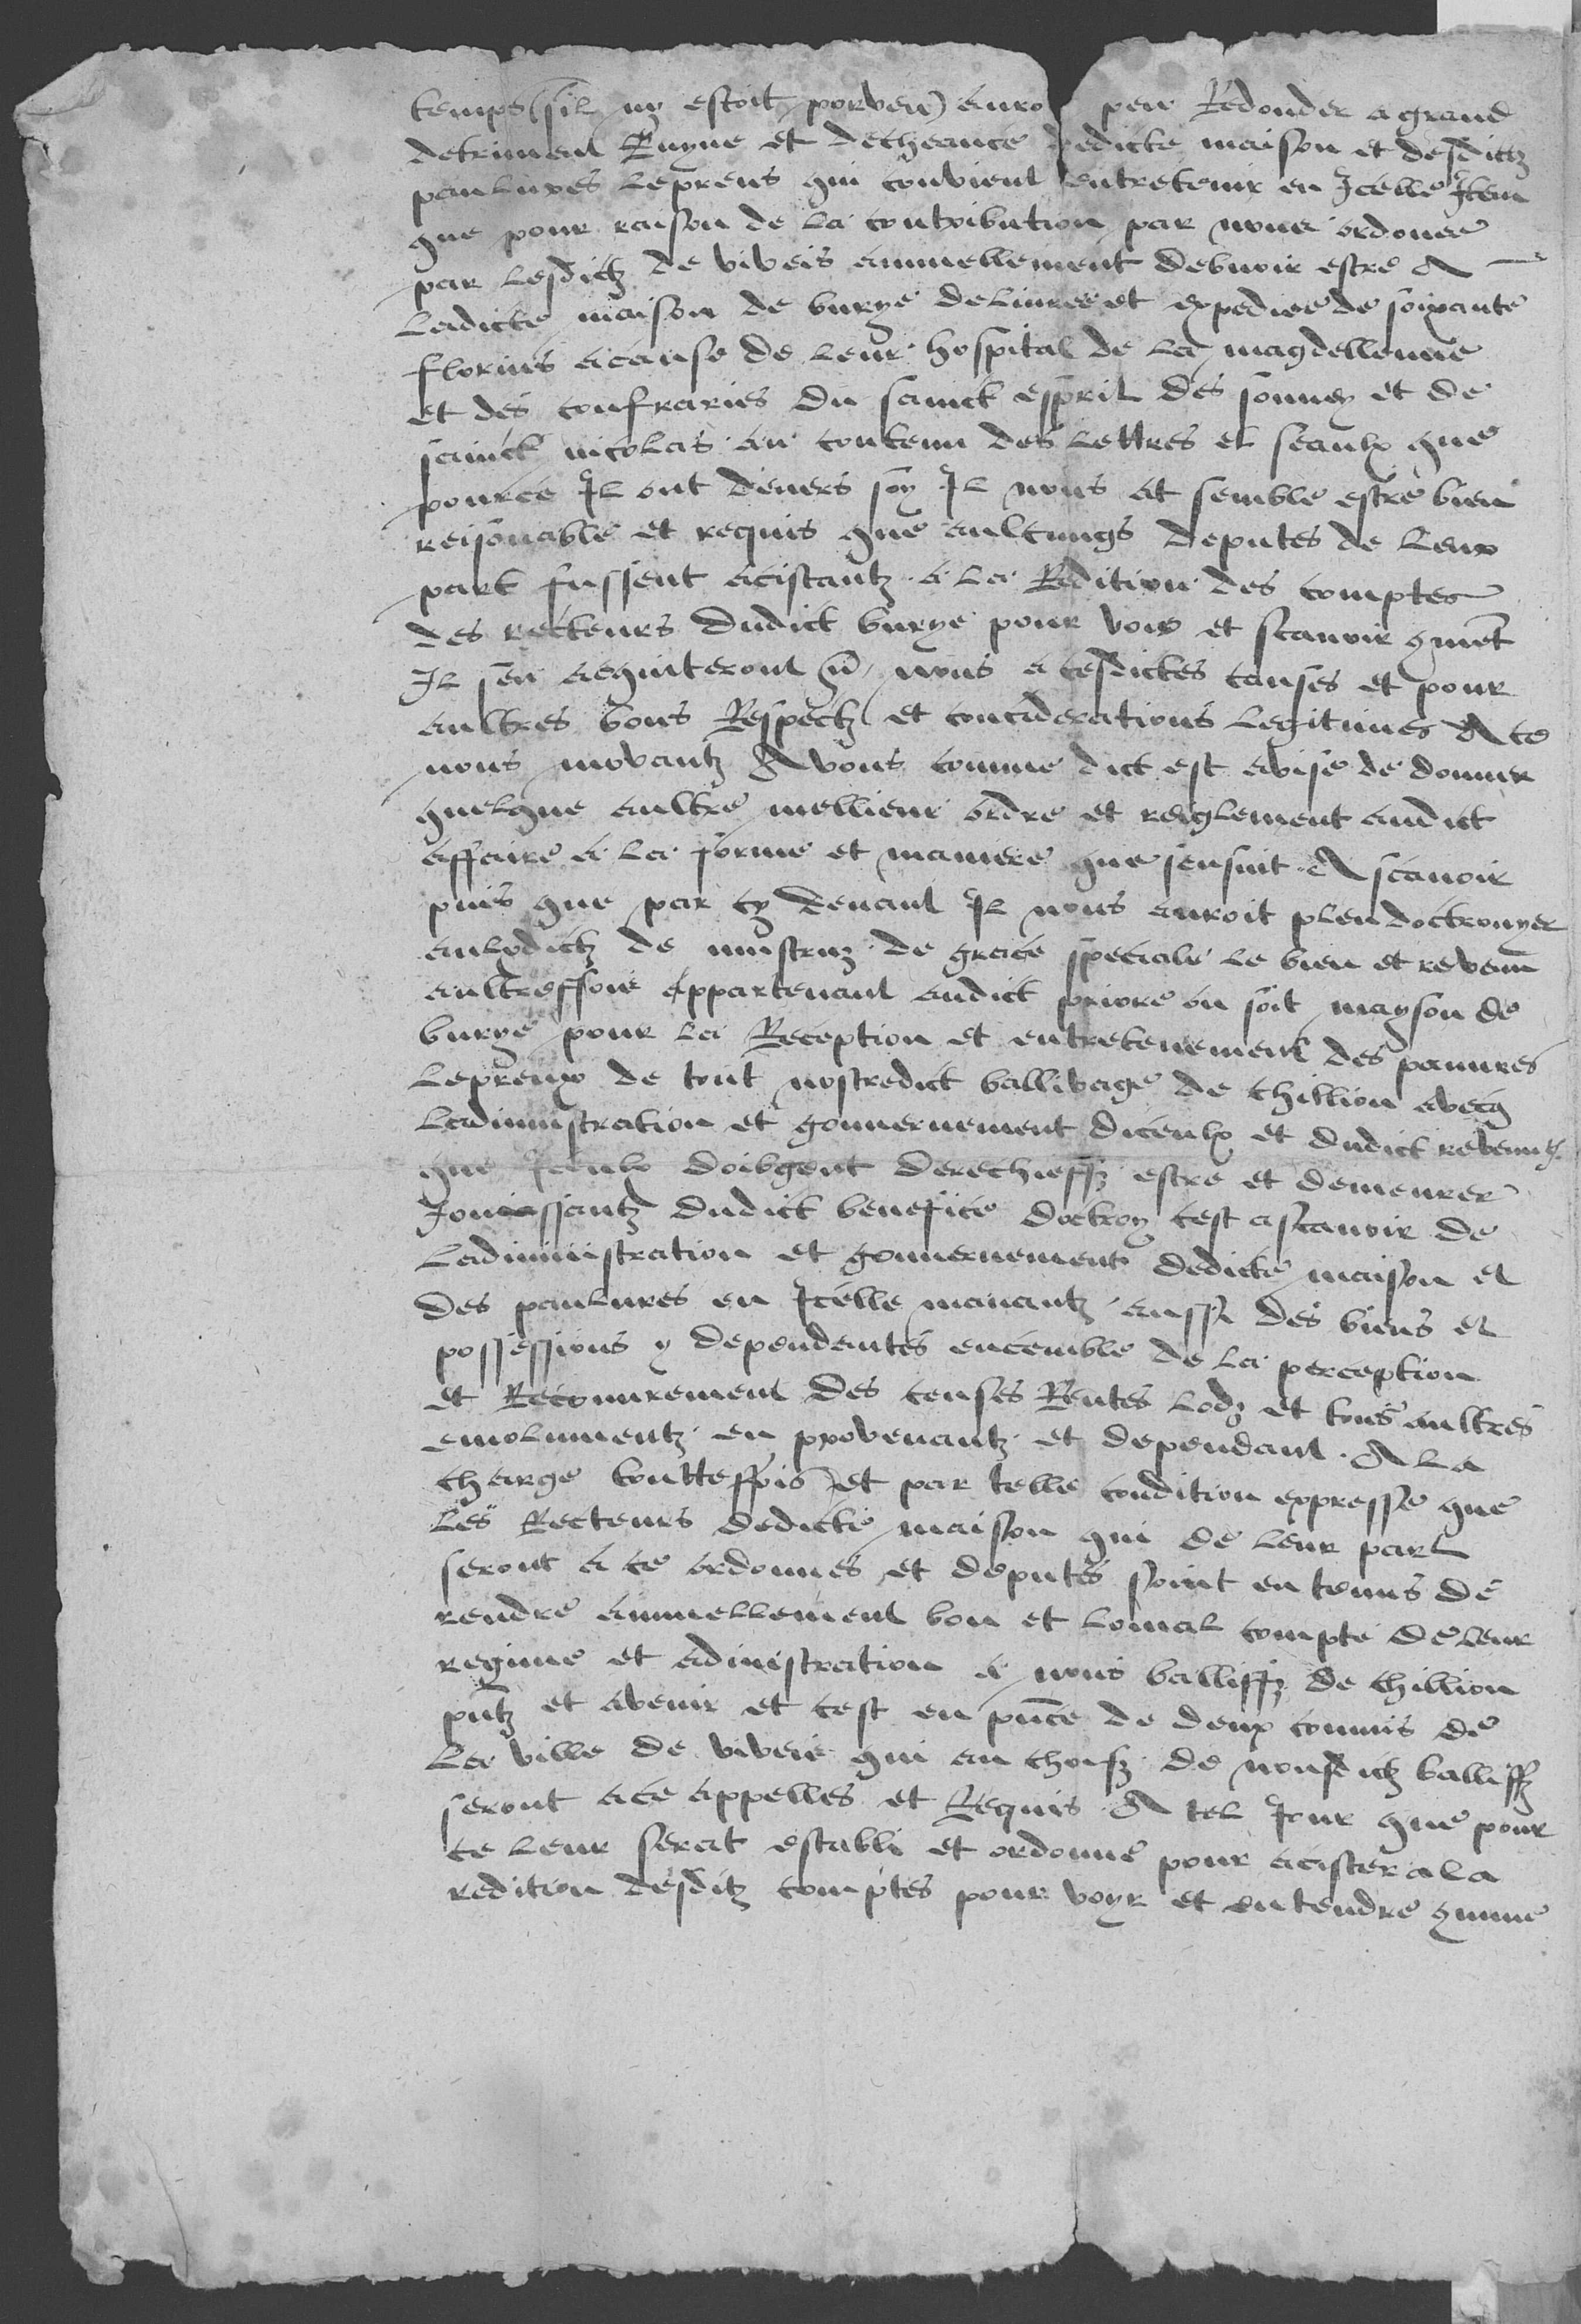 temps (sil ny estoit porveu) auro peu Redonder a grand
detriment Ruyne et decheance dedicte maison et desdictz
paulvres lepreus qui convient entretenir en Icelle Item
que pour raison de la contribution par nous ordonee
par lesdictz de viveis annuellement debvoir estre A
ladicte maison de burye delivree et expediee de soixante
florins a cause de leur hospital de la magdellenne
et des confraries du sainct esprit des sonney et de
sainct nicolas au contenu des lettres et seaulx que
pource Il ont devers soy Il nous at semble estre bien
reisonable et requis que aulcungs deputes de leur
part fussent acistantz a la Redition des comptes
des recteurs dudict burye pour voir et scavoir qment
Il sen aequiteront nous a cesdictes causes et pour
aultres bons Respectz et conciderations legitimes A ce
nous movantz Avons comme dict est avise de donner
quelque aultre mellieur ordre et reiglement audict
affaire a la forme et maniere que sensuit A scavoir
puis que par cy devant Il nous auroit pleu doctrouyer
aulxdictz de mustruz de grace speciale le bien et revenu
aultreffois appartenant audict priore ou soit mayson de
burye pour la Reception et entretenement des pauvres
lepreux de tout nostredict ballivage de chillion avecq
ladministration et gouvernement diceulx et dudict revenuz
que Iceulx doibgent derechieffz estre et demeurer
Jouissantz dudict benefice doctroy cest a scavoir de
ladiministration et gouvernement dedicte maison et
des paulvres en Icelle manantz aussi des biens et
possessions y dependentes encemble de la perception
et Recouvrement des censes Rentes lodz et tous aultres
emolumentz en provenantz et dependant A la
charge toutteffois et par telle condition expresse que
les Recteurs dedicte maison qui de leur part
seront a ce ordonnes et deputes soint entenus de
rendre annuellement bon et loual compte de leur
regime et adinistration a nous balliffz de chillion
pntz et avenir et cest en pnce de deux commis de
la ville de viveis qui au choisz de nousdictz balliffz
seront a ce appelles et Requis A tel Jour que pour
ce leur serat establi et ordonne pour acister a la
redition desditz comptes pour voyr et entendre qmme